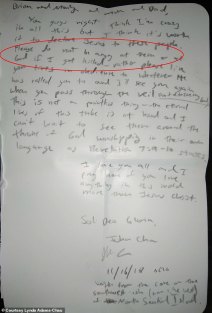 Brian and Mary and Mom and Dad
You guys might think I'm crazy
in all this but I think it's worth
it to declare Jesus to these people
Please do not be angry at them or at
God if I get killed rather please live
your lives in obedience to whatever He
has called you to and I'll see you again
when you pass through the veil
this is not a pointless thing - the eternal
lives of this tribe is at hand and I
can't wait to see them around the
throne of God worshipping in their own
language as Revelation 7:9-10 states
I love you all and I
pray none of you love
anything in this world
more than Jesus Christ
Soli Deo Gloria
John Chau
11/16/18
written from the cove on the
southwest
of North Sentinel Island
© Courtesy Lynda Adams-Chau